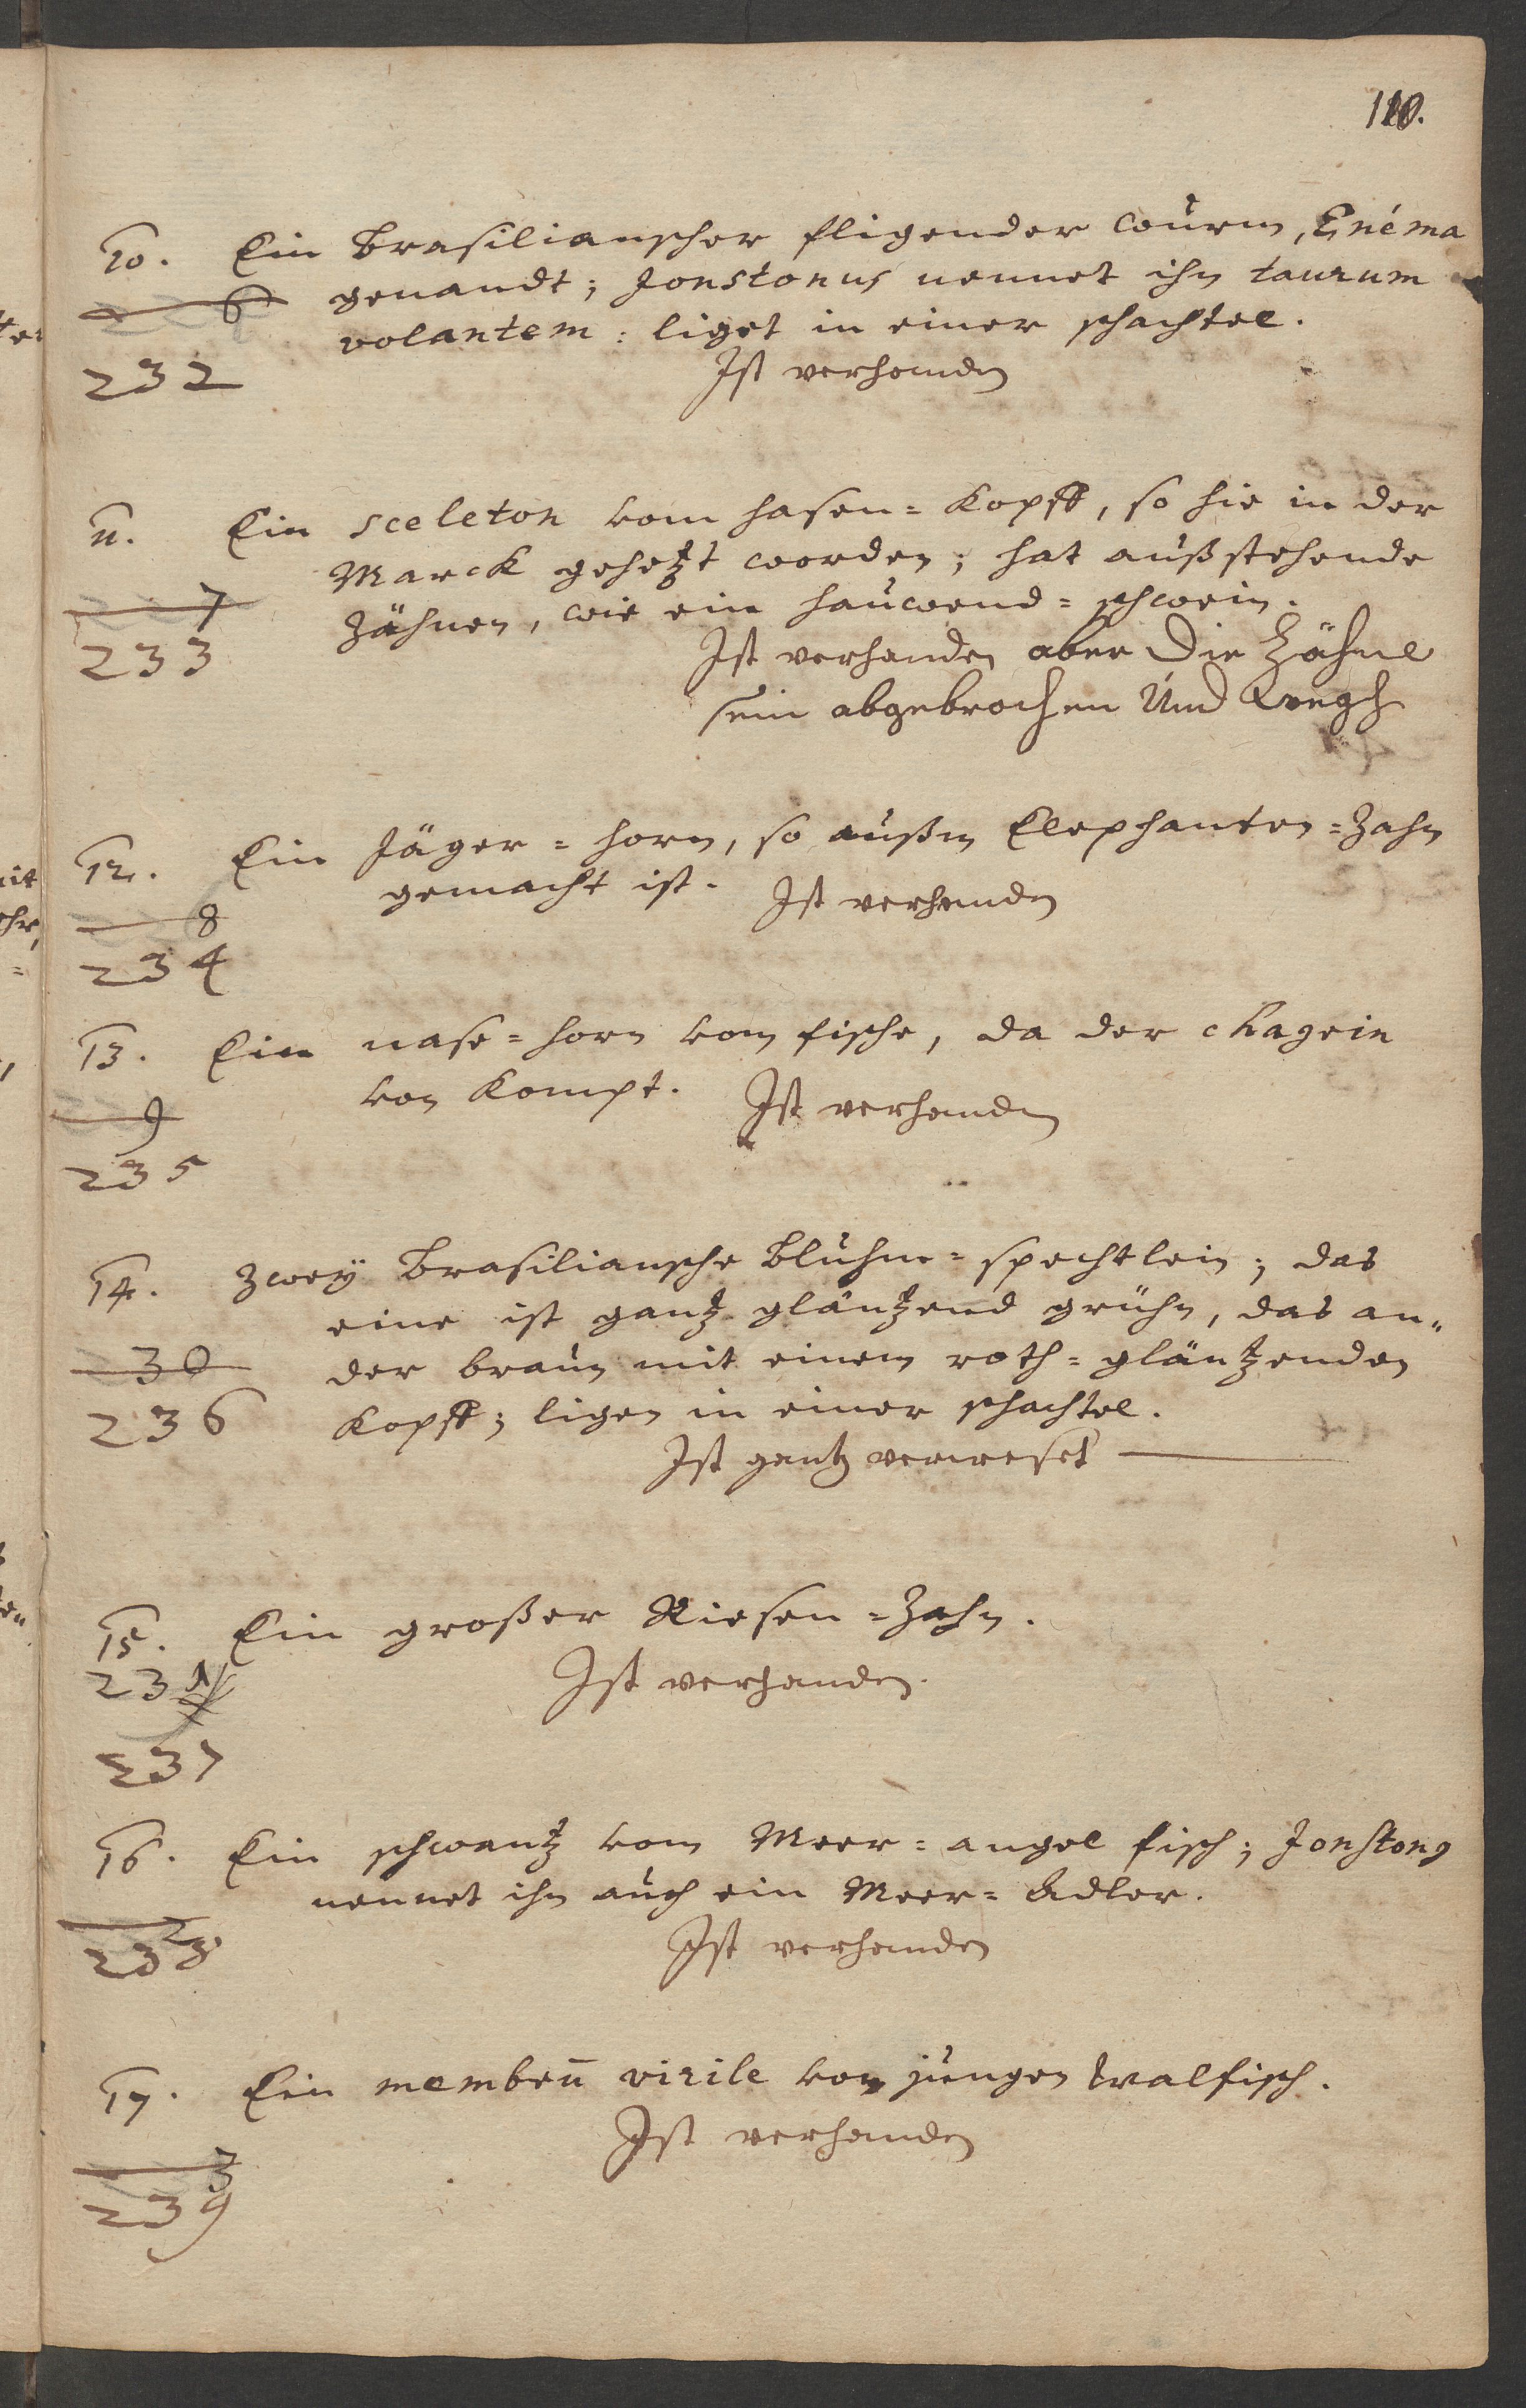 110.
10. Ein Brasilianscher fligender wurm, Enéma
genandt; Jonstonus nennet ihn taurum
6
volantem: liget in einer schachtel.
232
Ist verhanden
11. Ein sceleton vom hasen=Kopff, so hie in der
Marck gehetzt worden; hat außstehende
7
Zähnen, wie ein hauwend=schwein.
233
Ist verhanden aber Die Zähne
sein abgebrochen Und wegh
12. Ein Jäger=horn, so außm Elephanten=Zahn
gemacht ist. Ist verhanden
8
234
13. Ein nase=horn vom fische, da der chagrin
von kompt. Ist verhanden
9
235
14. Zwey Brasiliansche Bluhm=spechtlein; das
eine ist gantz gläntzend grühn, das an„
30
der braun mit einem roth=gläntzenden
236
Kopff; ligen in einer schachtel.
Ist gantz verweset
15. Ein großer Riesen=Zahn.
231
Ist verhanden.
237
16. Ein schwantz vom Meer=angel fisch; Jonstong
nennet ihn auch ein Meer=Adler.
2
238
Ist verhanden
17. Ein membrū virile vom jungen Walfisch.
Ist verhanden
3
239